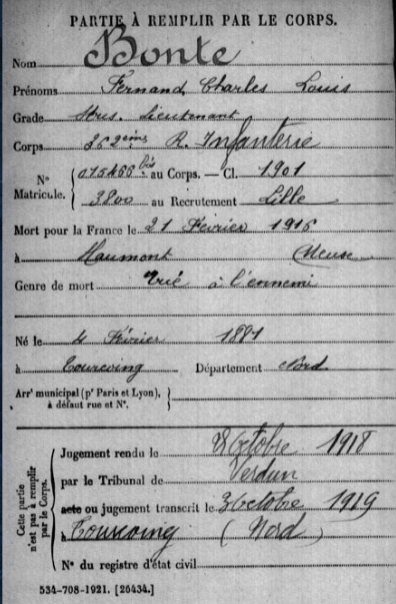 PARTIE À REMPLIR PAR LE CORPS.
Nom Bonte
Prénoms Fernand Charles Louis
Grade Lieutenant
Corps 362ème R. Infanterie
N° Matricule. { 015466 bis au Corps. — Cl. 1901
3800 au Recrutement Lille
Mort pour la France le 21 Février 1916
à Haumont (Meuse
Genre de mort Tué à l'ennemi
Né le 4 Février 1881
à Tourcoing Département Nord
Arrt municipal (pr Paris et Lyon), }
à défaut rue et N°.
Cette partie n'est pas à remplir par le Corps.
Jugement rendu le 8 Octobre 1918
par le Tribunal de Verdun
acte ou jugement transcrit le 3 Octobre 1919
à Tourcoing (Nord)
N° du registre d'état civil
534-708-1921. [26434.]